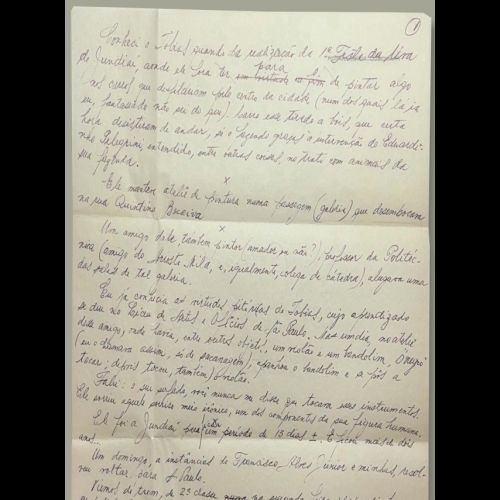 1
Conheci o Tobias quando da realização da 1ª Festa da Uva
de Jundiaí aonde ele fora ter para de pintar algo
nos carros que desfilavam pelo centro da cidade (num dos quais lá ia
eu, fantasiado não sei de que) carro esse tirado a bois, que certa
hora desistiram de andar, só o fazendo graças à intervenção do
não Pelegrini, entendido, entre outras coisas, no trato com animais da
sua fazenda.
x
Ele mantem ateliê de pintura numa passagem (galeria) que desembocava
na rua Quintino Bocaiuva
x
Um amigo dele, também pintor (amador ou não?), professor da Politéc-
nica (amigo do Mila, e, igualmente, colega de cátedra), alugara uma
das salas de tal galeria.
Eu já conhecia as virtudes de Tobias, cujo aprendizado
se deu no Liceu de Artes e Ofícios de São Paulo. Mas um dia, no ateliê
desse amigo, onde havia, entre outros objetos, um violão e um bandolim, O negro
(eu o chamava assim, só de sacanagem), apanhou o bandolim e se pôs a
tocar; depois tocou, também, o violão.
Falei: o seu safado, você nunca me disse que tocava esses instrumentos.
Ele sorriu aquele sorriso meio irônico, um dos componentes da sua figura humana.
Ele foi a Jundiaí para um período de 15 dias ±. E ficou mais de dois
anos.
Um domingo, a instâncias de Francisco Alves Junior e minhas, resol-
veu voltar para S. Paulo.
Viemos de trem, de 2ª classe